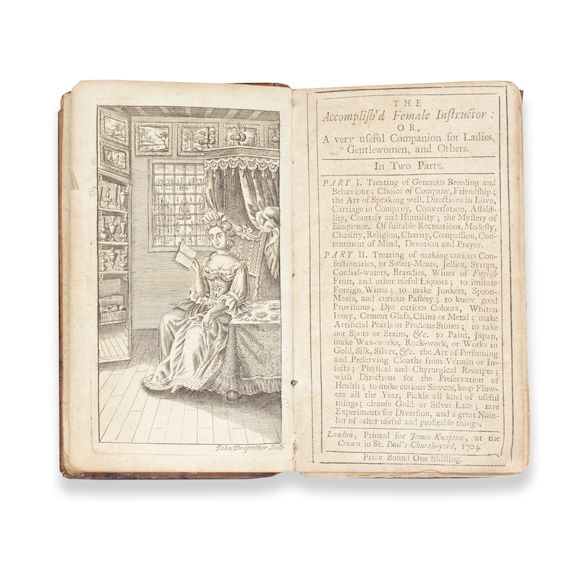 John Drapentier Sculp.
THE
Accomplish'd Female Instructor:
OR,
A very useful Companion for Ladies,
Gentlewomen, and Others.
In Two Parts.
PART I. Treating of Generous Breeding and
Behaviour; Choice of Company, Friendship;
the Art of Speaking well, Directions in Love,
Carriage in Company, Conversation, Affabili-
ty, Courtesy and Humility; the Mystery of
Eloquence, Of suitable Recreations, Modesty,
Chastity, Religion, Charity, Compassion, Con-
tentment of Mind, Devotion and Prayer.
PART II. Treating of making curious Con-
fectionaries, or Sweet-Meats, Jellies, Syrups,
Cordial-waters, Brandies, Wines of English
Fruit, and other useful Liquors; to imitate
Foreign Wines; to make Junkets, Spoon-
Meats, and curious Pastery; to know good
Provisions, Dye curious Colours, Whiten
Ivory, Cement Glass, China or Metal; make
Artificial Pearls or Precious Stones; to take
out Spots or Stains, &c. to Paint, Japan,
make Wax-works, Rock-work, or Works in
Gold, Silk, Silver, &c. the Art of Perfuming
and Preserving Cloaths from Vermin or In-
sects; Physical and Chyrurgical Receipts;
with Directions for the Preservation of
Health; to make curious Sawces, keep Flow-
ers all the Year, Pickle all kind of useful
things; cleanse Gold or Silver Lace; rare
Experiments for Diversion, and a great Num-
ber of other useful and profitable things.
London, Printed for James Knapton, at the
Crown in St. Paul's Church-yard, 1704.
Price Bound One Shilling.